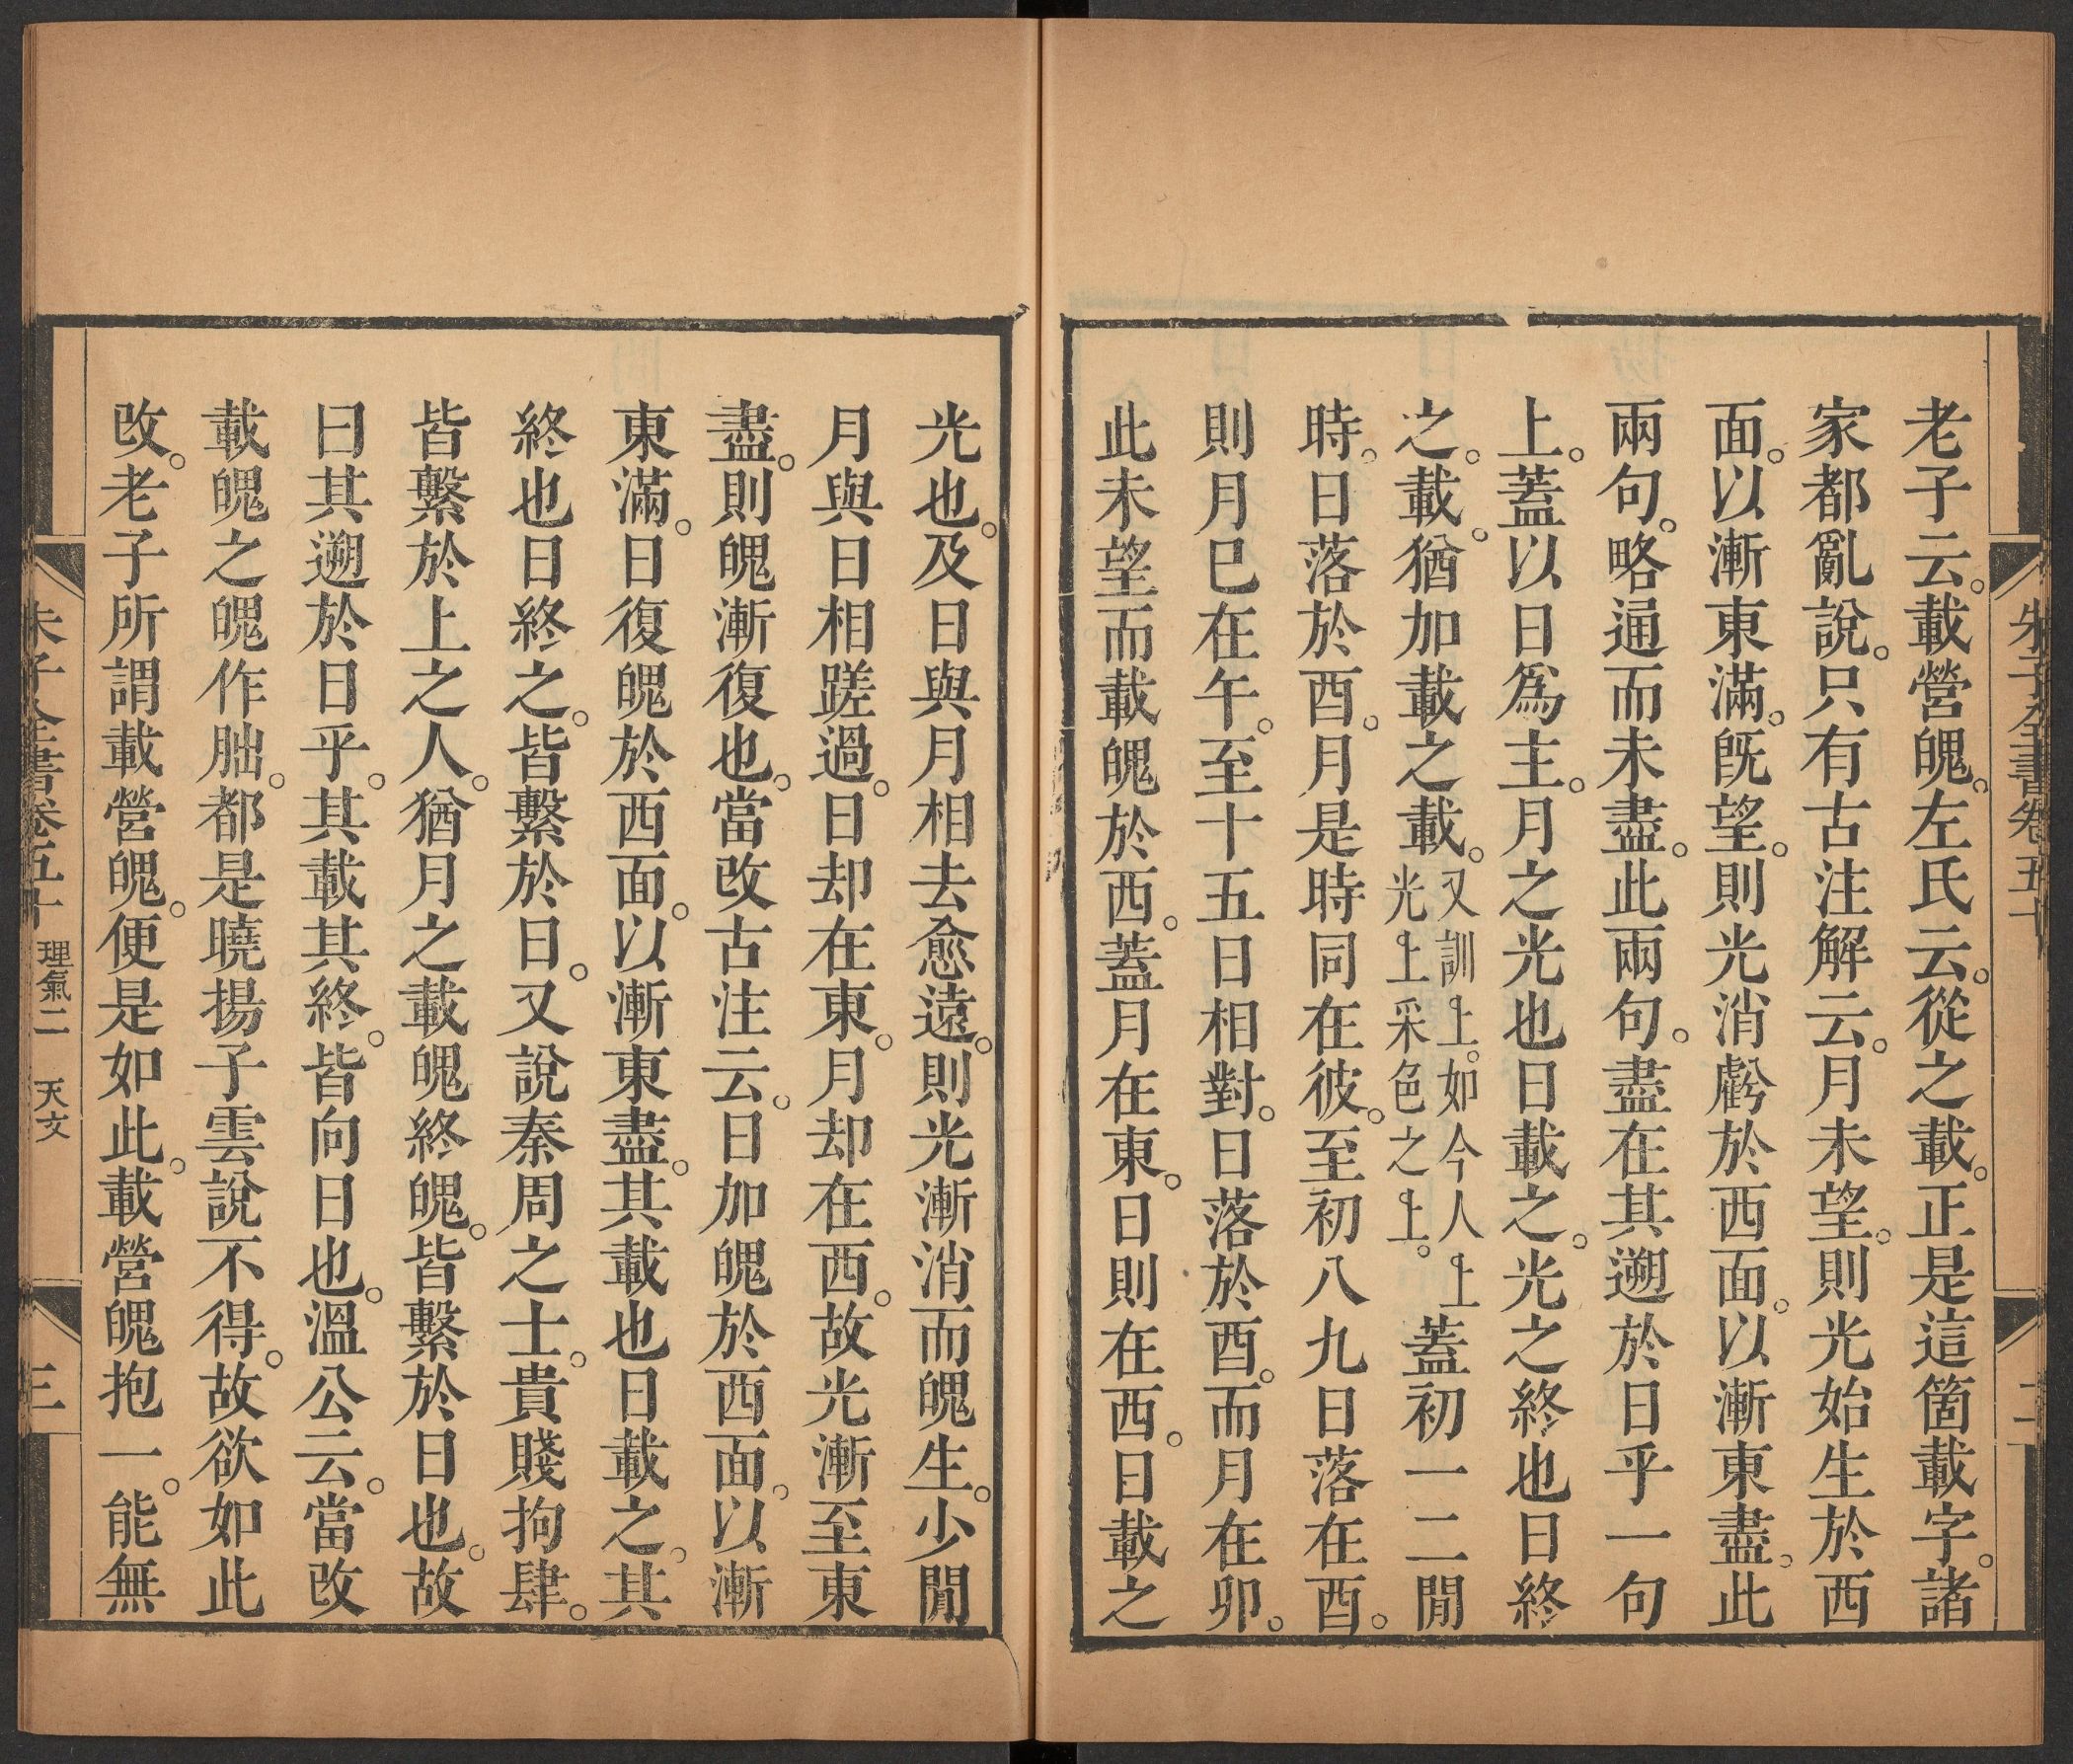 朱子全書卷五十
二
老子云。載營魄。左氏云。從之載。正是這箇載字。諸
家都亂說。只有古注解云。月未望。則光始生於西
面。以漸東滿。旣望。則光消虧於西面。以漸東盡。此
兩句。略通而未盡。此兩句。盡在其遡於日乎一句
上。蓋以日爲主。月之光也日載之。光之終也日終
之。載。猶加載之載。又訓上。如今人上光上采色之上。蓋初一二閒
時。日落於酉。月是時同在彼。至初八九日落在酉。
則月巳在午。至十五日相對。日落於酉。而月在卯。
此未望而載魄於西。蓋月在東。日則在西。日載之
光也。及日與月相去愈遠。則光漸消而魄生。少閒
月與日相蹉過。日却在東。月却在西。故光漸至東
盡。則魄漸復也。當改古注云。日加魄於西面。以漸
東滿。日復魄於西面。以漸東盡。其載也日載之。其
終也日終之。皆繫於日。又說秦周之士。貴賤拘肆。
皆繫於上之人。猶月之載魄終魄。皆繫於日也。故
曰其遡於日乎。其載其終。皆向日也。溫公云。當改
載魄之魄作朏。都是曉揚子雲說不得。故欲如此
改。老子所謂載營魄。便是如此。載營魄抱一。能無
朱子全書卷五十 理氣二 天文
三